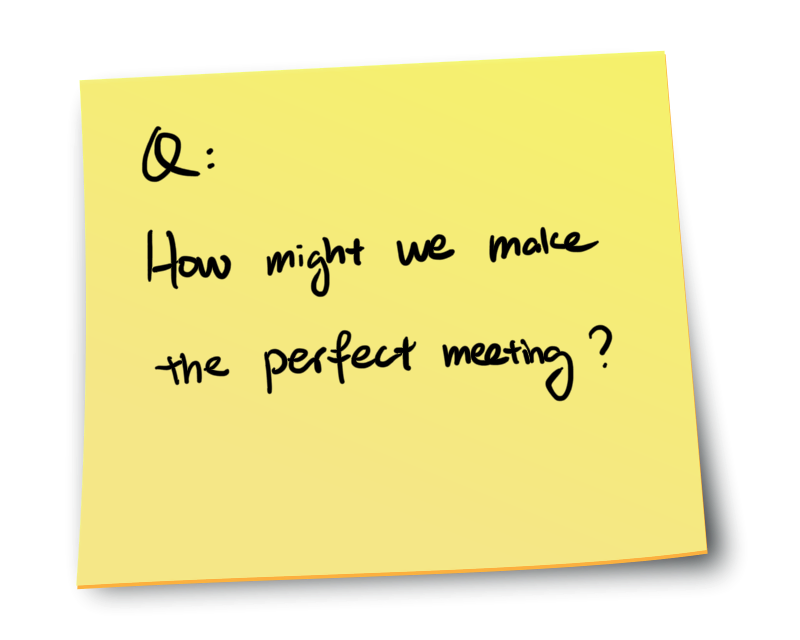 Q:
How might we make
the perfect meeting?